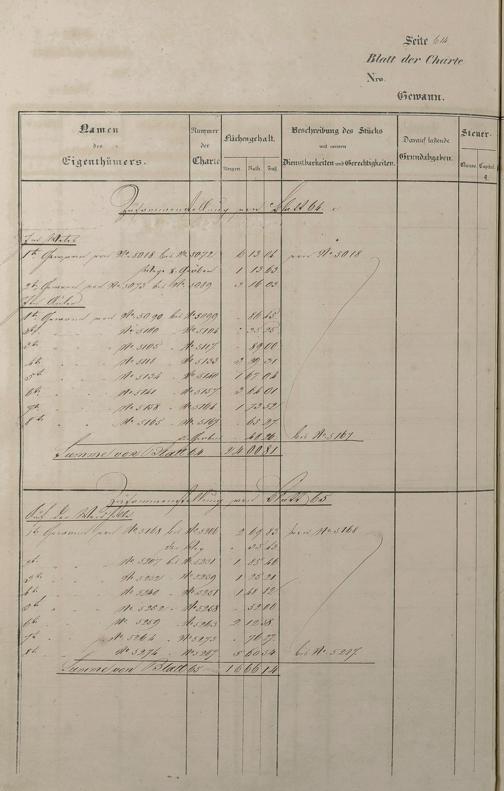 Seite 614
Blatt der Charte
Nro.
Gewann.
Namen des Eigenthümers.
Nummer der Charte
Flächengehalt.
Morgen Ruth. Fuß
Beschreibung des Stücks mit seinen Dienstbarkeiten und Gerechtigkeiten.
Darauf haftende Grundabgaben.
Steuer.
Classe. Capital.
Zusammenstellung von Blatt 64.
1te Gewann von No 5018 bis No 5072 6 13 06 von No 5018
1 13 63
2te Gewann von No 5073 bis No 5089 3 16 03
1te Gewann von No 5090 bis No 5099 86 45
No 5100 No 5104 25 25
3te No 5105 No 5117 89 00
4te No 5118 No 5133 2 29 31
5te No 5134 No 5140 1 67 04
6te No 5141 No 5157 2 64 01
7te No 5158 No 5164 1 73 52
8te No 5165 No 5167 65 27
bis No 5167
Summe von Blatt 64 24 00 81
Zusammenstellung von Blatt 65
1te Gewann von No 5168 bis No 5206 2 69 13 von No 5168
No 5207 bis No 5231 1 85 40
No 5232 No 5239 1 25 21
4te No 5240 No 5251 1 48 12
5te No 5252 No 5258 52 00
6te No 5259 No 5263 2 12 38
7te No 5264 No 5273 76 77
8te No 5274 No 5287 5 60 54 bis No 5287
Summe von Blatt 65 16 66 14